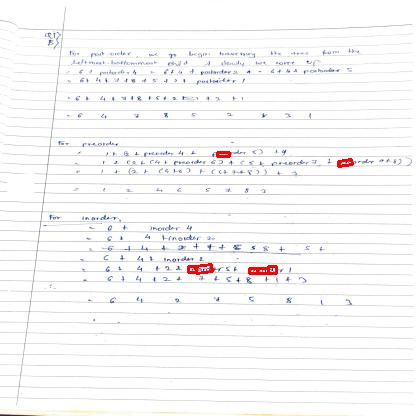 Q1)
B)
For post-order, we go begin traversing the tree from the
leftmost-bottommost child & slowly we come up
= 6 + postorder 4 = 6 + 4 + postorder 2 = 6 + 4 + postorder 5
= 6 + 4 + 7 + 8 + 5 + 2 + postorder 1
= 6 + 4 + 7 + 8 + 5 + 2 + 3 + 1
= 6 4 7 8 5 2 3 1
For preorder
= 1 + 2 + preorder 4 + order 5) +
= 1 + (2 + (4 + preorder 6) + (5 + preorder 7 + order 8))
= 1 + (2 + (4+6) + (5+7+8)) + 3
= 1 2 4 6 5 7 8 3
For inorder,
= 6 + inorder 4
= 6 + 4 + inorder 2
= 6 + 4 + 2 + 7 + 5 8 + 5 +
= 6 + 4 + inorder 2
= 6 + 4 + 2 + 5 + 1
= 6 + 4 + 2 + 7 + 5 + 8 + 1 + 3
= 6 4 2 7 5 8 1 3